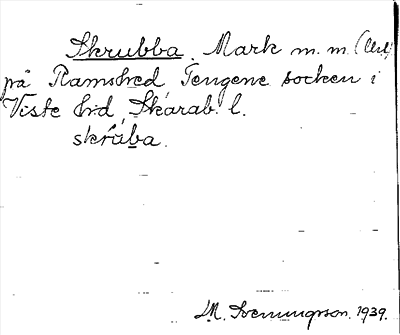 Skrubba. Mark m. m. (Urb)
på Ramshed, Tengene socken i
Viste h:d, Skarab. l.
skrúba.
M. Svenungsson. 1939.